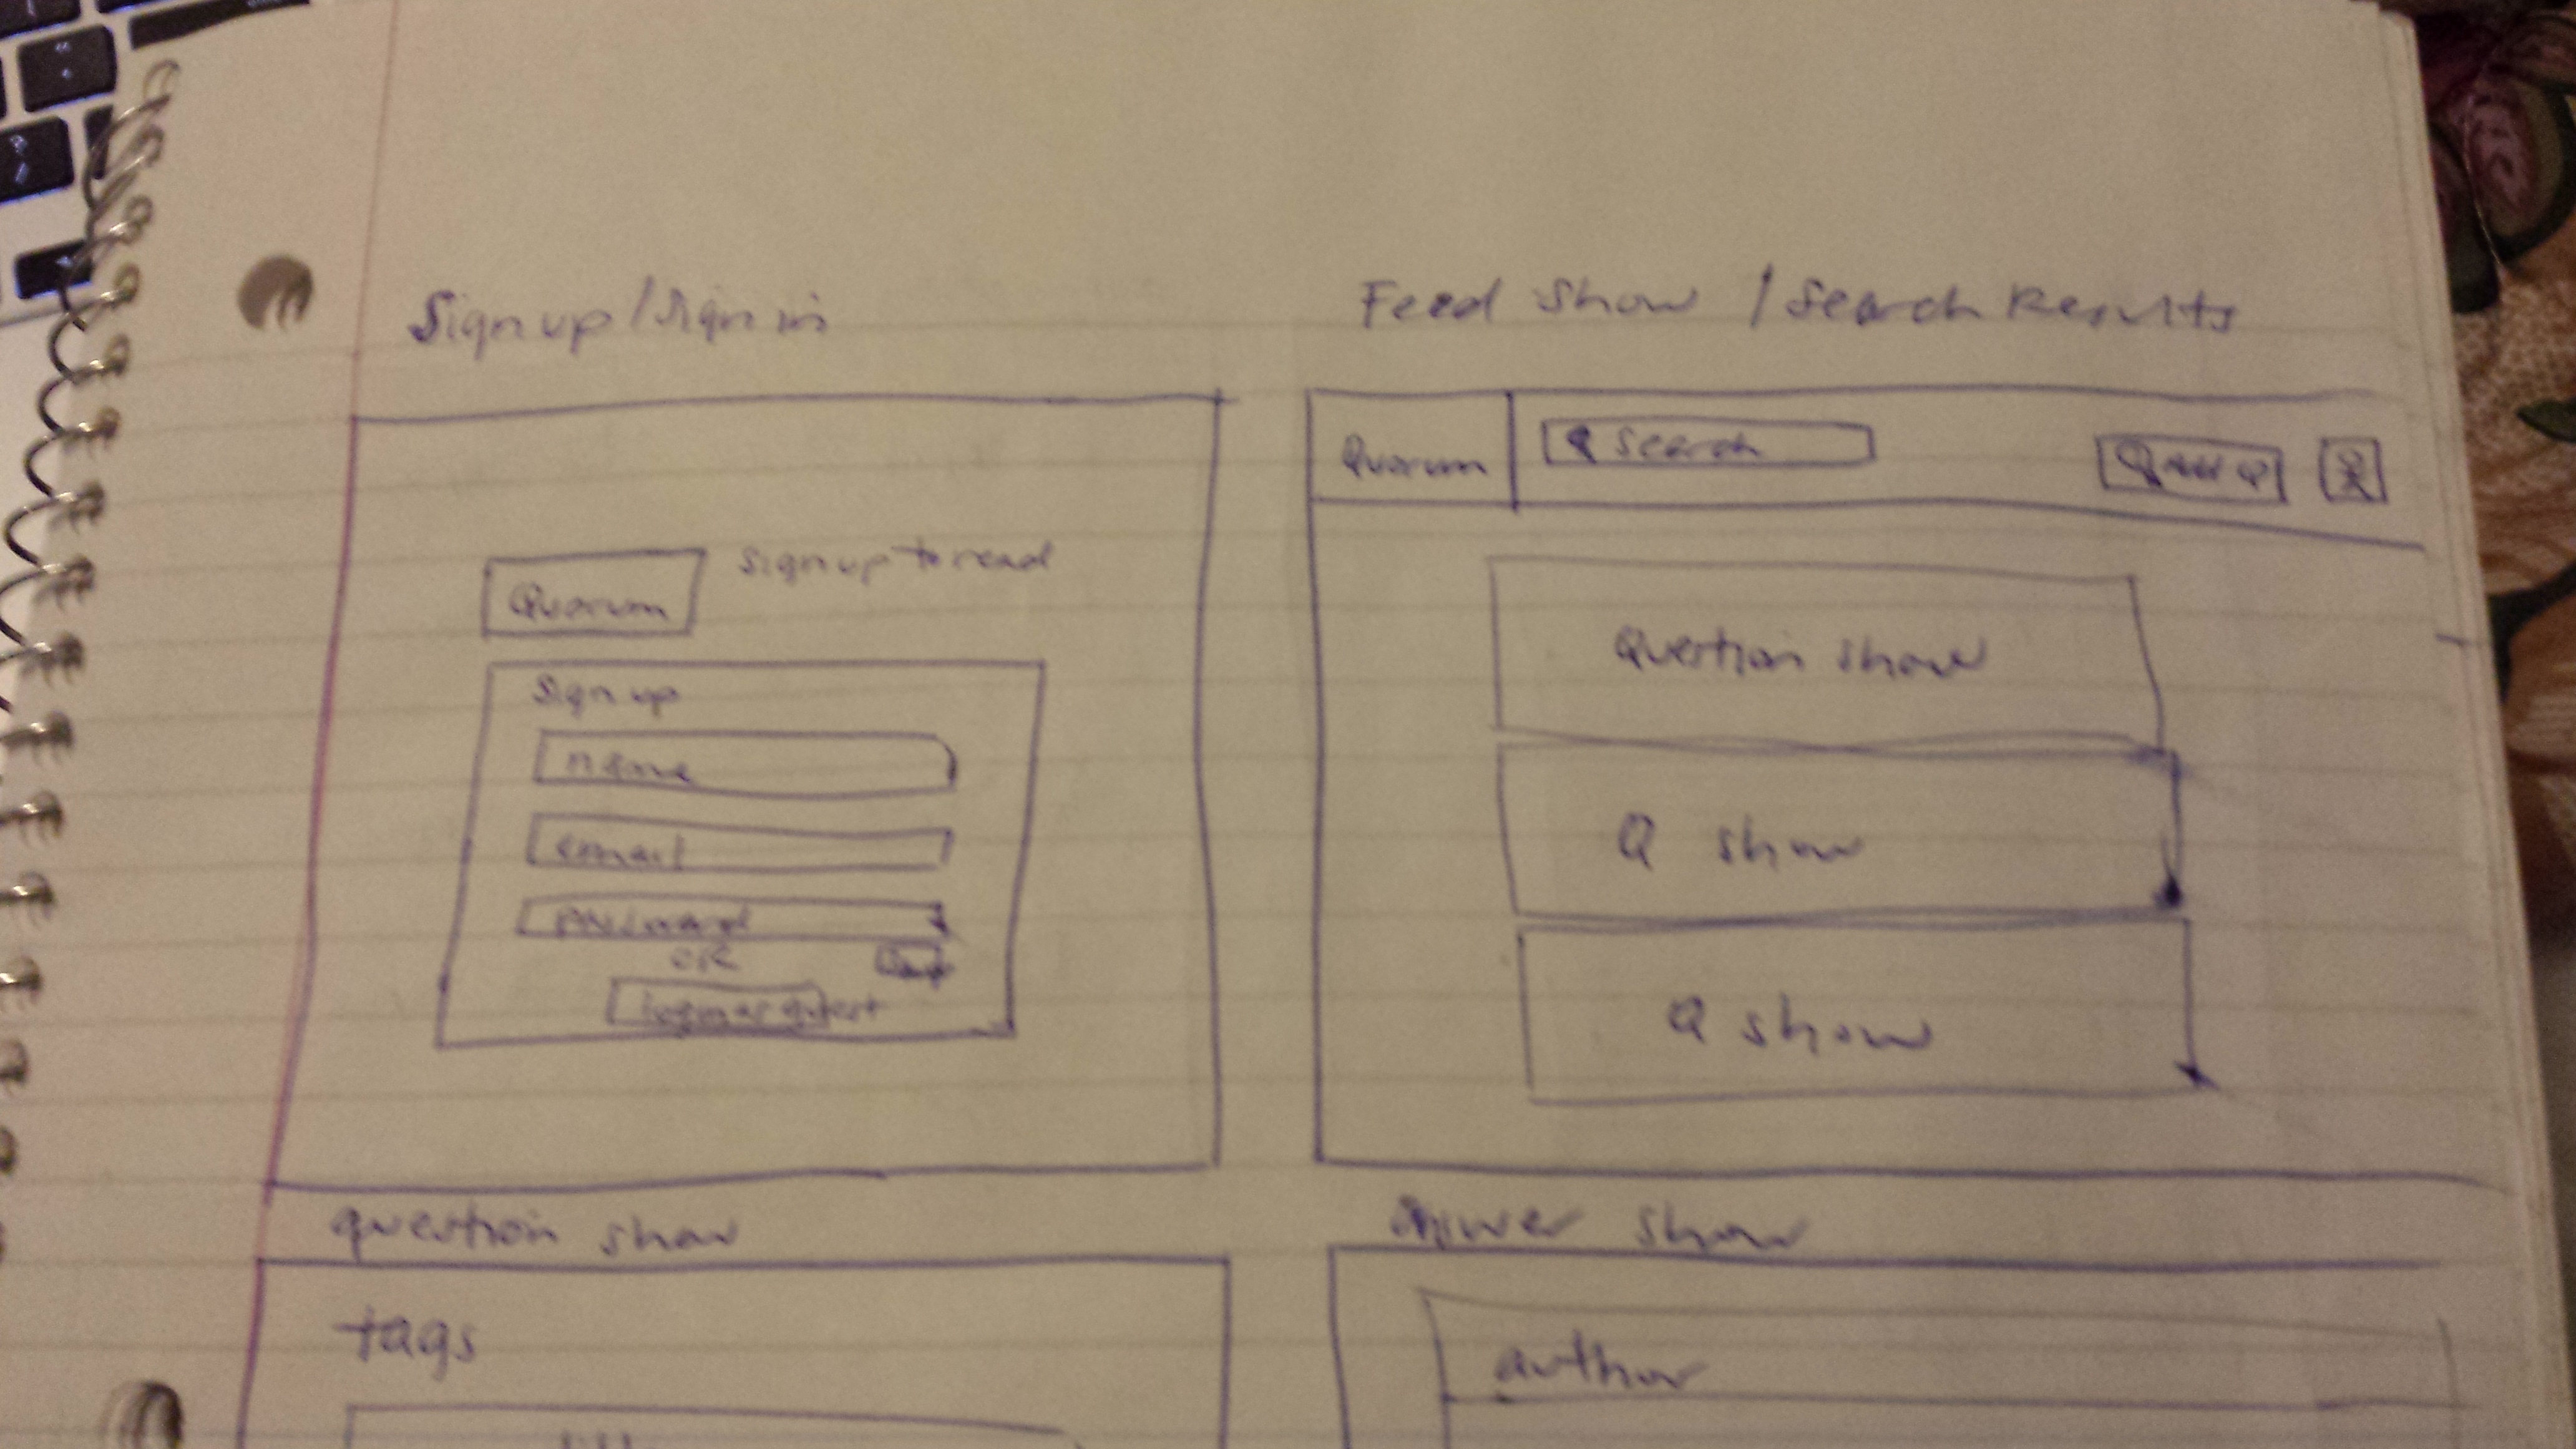 Sign up / Sign in
Quorum
sign up to read
Sign up
name
email
password
OR
login as guest
Feed Show / Search Results
Quorum
Search
Add Q
Question show
Q show
Q show
question show
tags
Answer show
author